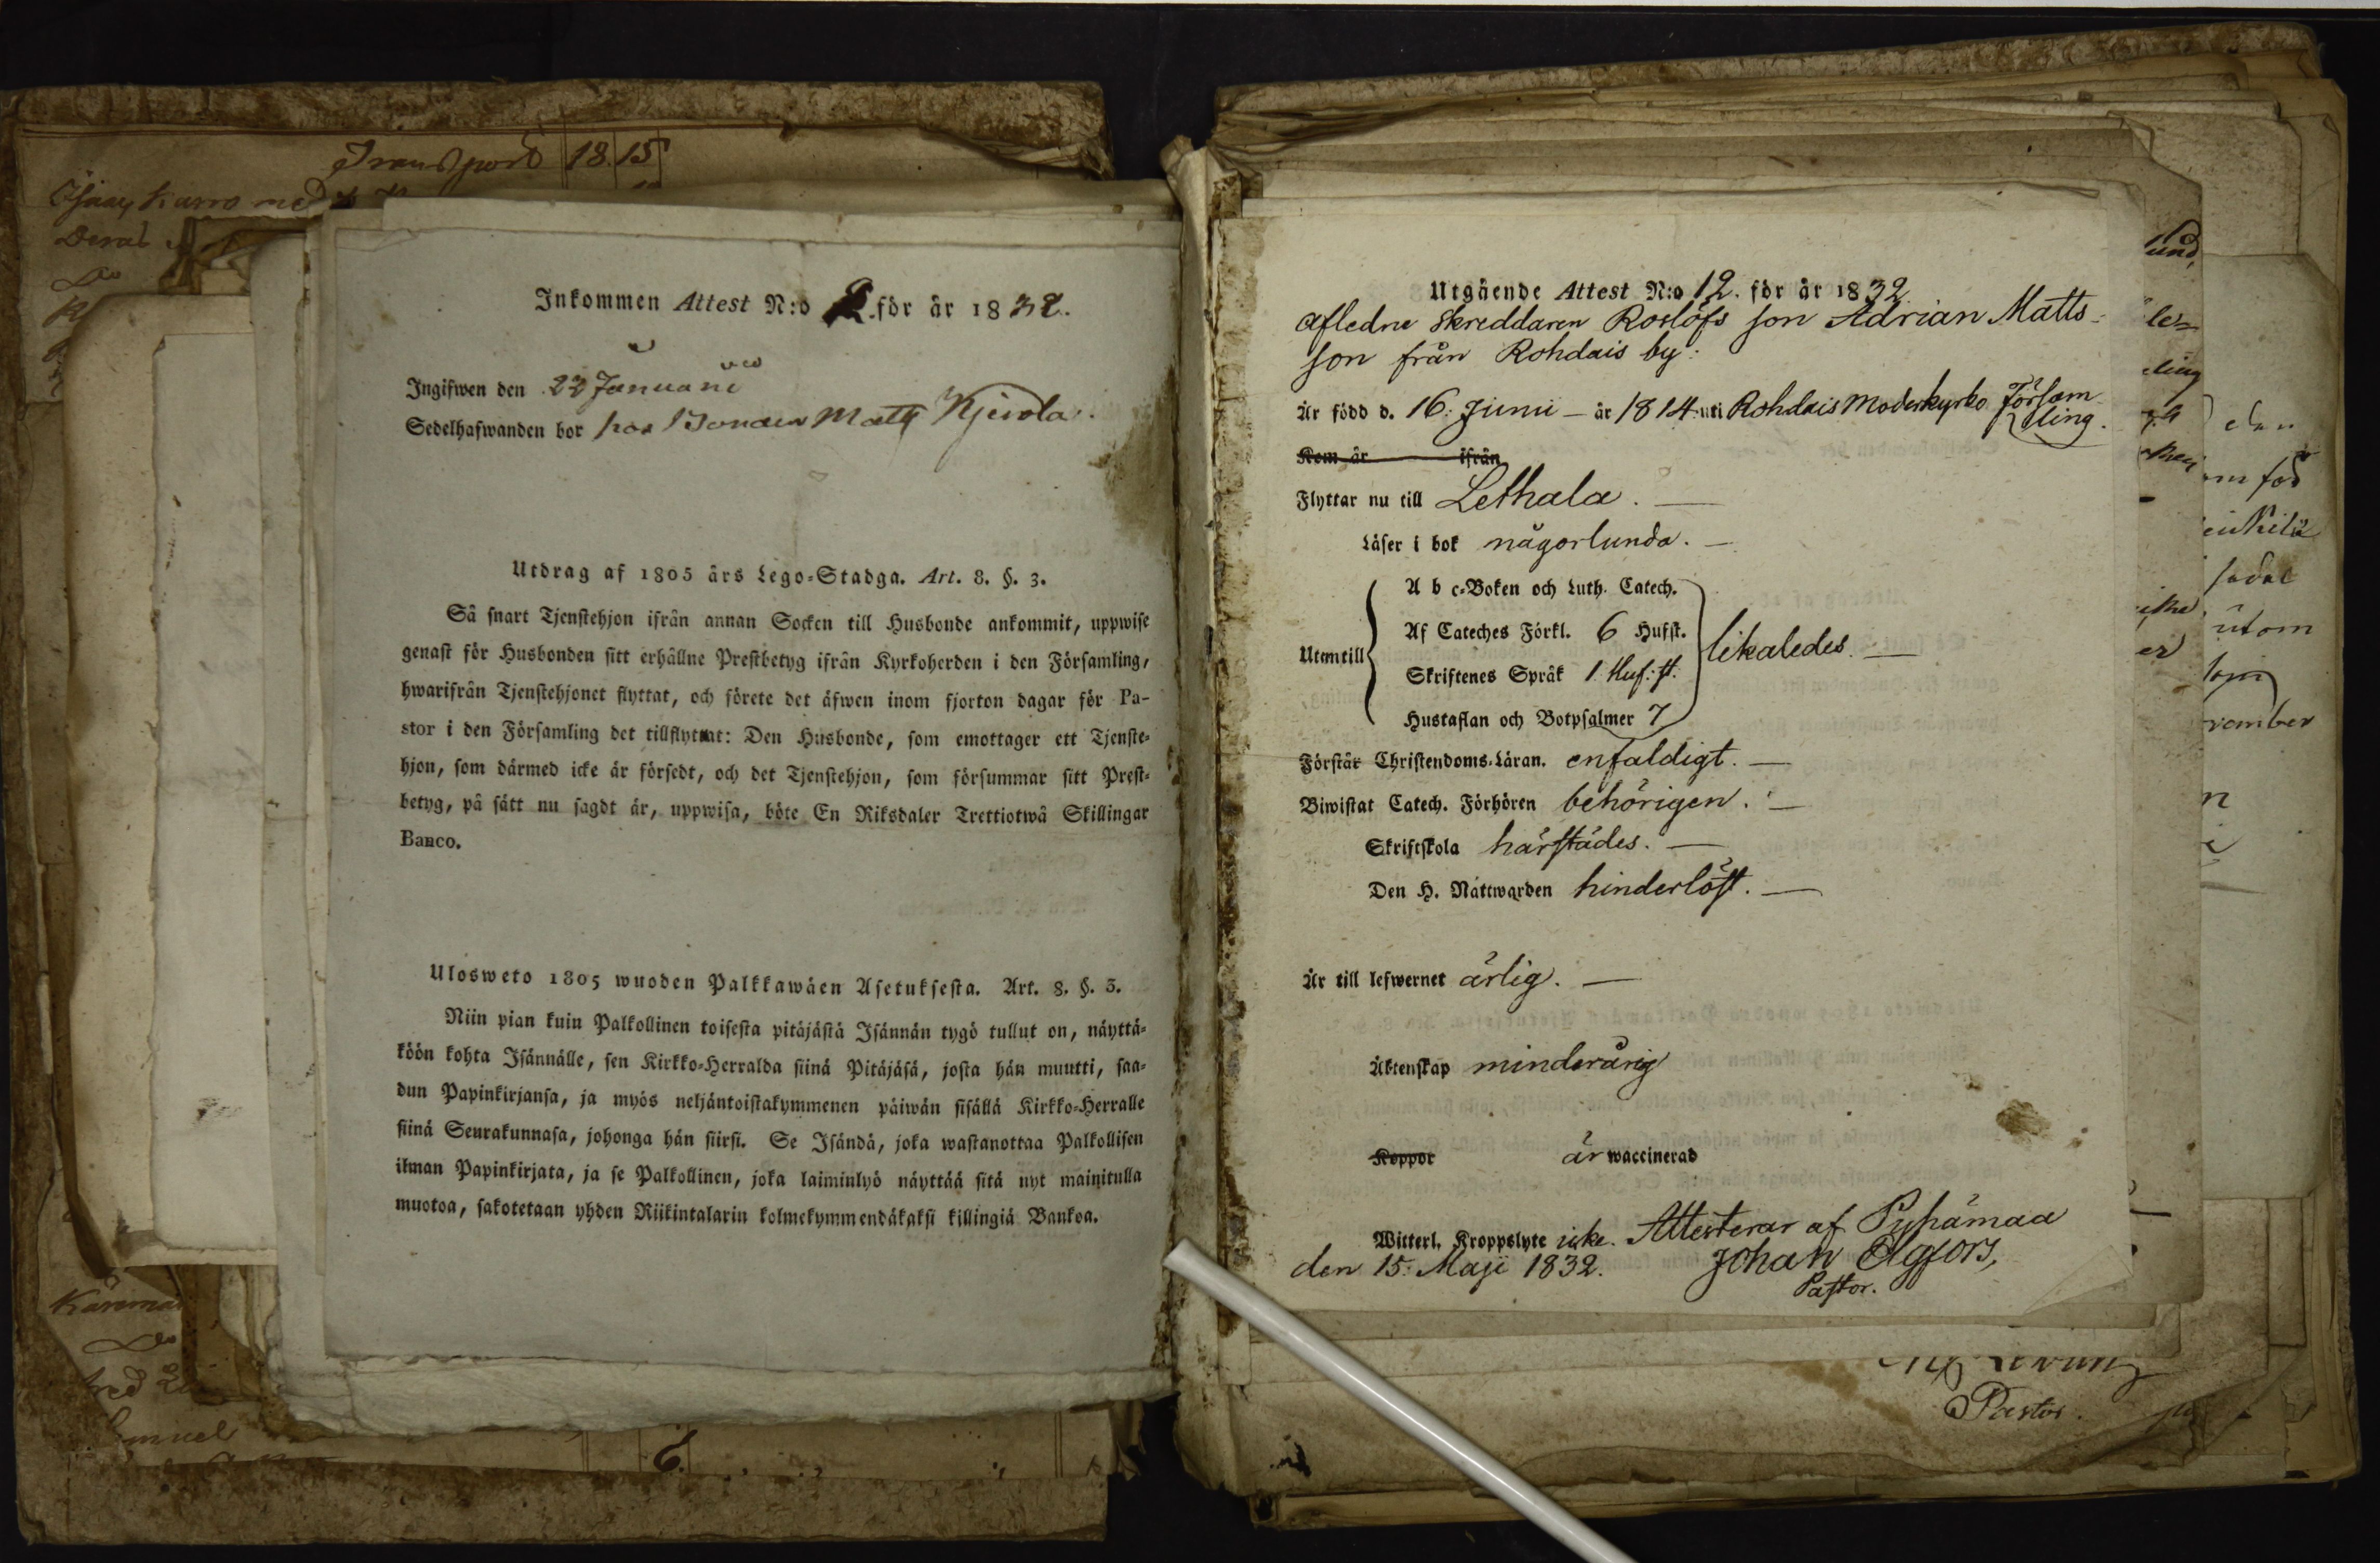 Transport 18. 15
Inkommen Attest N:o 2. för år 1832.
Ingifwen den 22 Januarii
Sedelhafwanden bor hos Bonden Matts Kjerola.
Utdrag af 1805 års Lego-Stadga. Art. 8. §. 3.
Så snart Tjenstehjon ifrån annan Socken till Husbonde ankommit, uppwise
genast för Husbonden sitt erhållne Prestbetyg ifrån Kyrkoherden i den Församling,
hwarifrån Tjenstehjonet flyttat, och förete det äfwen inom fjorton dagar för Pa-
stor i den Församling det tillflyttat: Den Husbonde, som emottager ett Tjenste-
hjon, som därmed icke är försedt, och det Tjenstehjon, som försummar sitt Prest-
betyg, på sätt nu sagdt är, uppwisa, böte En Riksdaler Trettiotwå Skillingar
Banco.
Ulosweto 1805 wuoden Palkkawäen Asetuksesta. Art. 8. §. 3.
Niin pian kuin Palkollinen toisesta pitäjästä Isännän tygö tullut on, näyttä-
köön kohta Isännälle, sen Kirkko-Herralda siinä Pitäjäsä, josta hän muutti, saa-
dun Papinkirjansa, ja myös neljäntoistakymmenen päiwän sisällä Kirkko-Herralle
siinä Seurakunnasa, johonga hän siirsi. Se Isändä, joka wastanottaa Palkollisen
ilman Papinkirjata, ja se Palkollinen, joka laiminlyö näyttää sitä nyt mainitulla
muotoa, sakotetaan yhden Riikintalarin kolmekymmendäkaksi killingiä Bankoa.
Utgående Attest N:o 12. för år 1832
afledne Skreddaren Roslöfs son Adrian Matts-
son från Rohdais by:
Är född d. 16. Junii — år 1814 uti Rohdais Moderkyrko Församling.
Kom år ifrån
Flyttar nu till Lethala. —
Läser i bok någorlunda. —
A b c-Boken och Luth. Catech.
Af Cateches Förkl. 6 Hufst.
Utantill likaledes. —
Skriftenes Språk 1 Huf:st.
Hustaflan och Botpsalmer 7
Förstår Christendoms-Läran. enfaldigt. —
Biwistat Catech. Förhören behörigen. —
Skriftskola härstädes. —
Den H. Nattwarden hinderlöst. —
Är till lefwernet ärlig. —
Äktenskap minderårig
Koppor är waccinerad
Witterl. Kroppslyte icke. Attesterar af Pyhämaa
den 15: Maji 1832. Johan Elgfors,
Pastor.
Pastor.